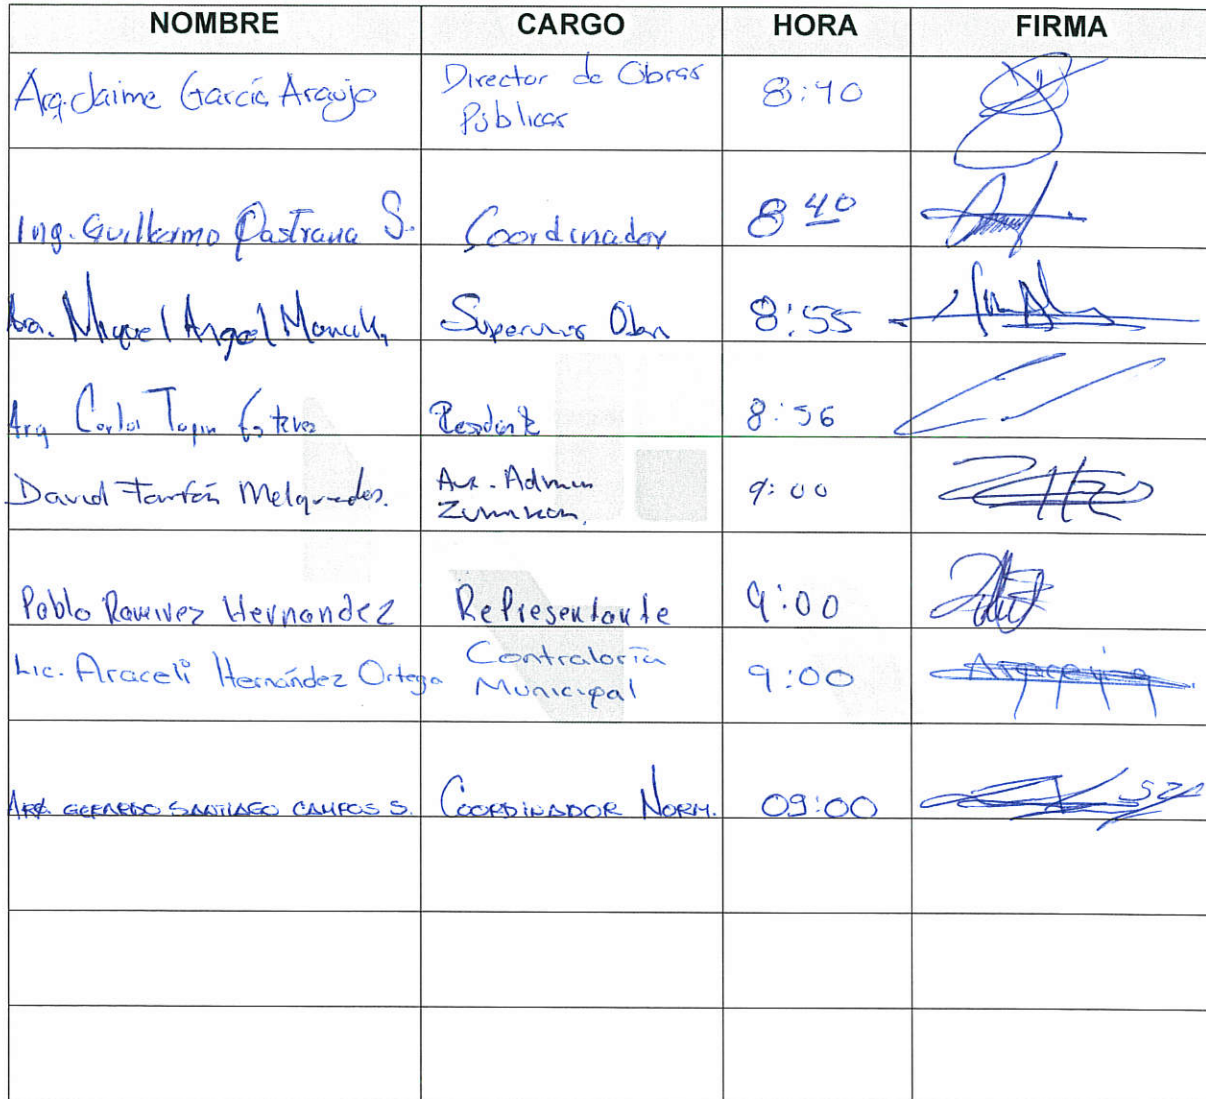 NOMBRE CARGO HORA FIRMA
Arq. Jaime García Araujo Director de Obras 8:40
Públicas
Ing. Guillermo Pastrana S. Coordinador 8 40
Miguel Angel Supervisor Obra 8:55
Arq Carlos Tapia Esteves Residente 8:56
David Farfán Melquiades. Aux. Admin 9:00
Pablo Ramirez Hernandez Representante 9:00
Lic. Araceli Hernández Ortega Contraloría 9:00
Municipal
ARQ. GERARDO SANTIAGO CAMPOS S. COORDINADOR NORM. 09:00